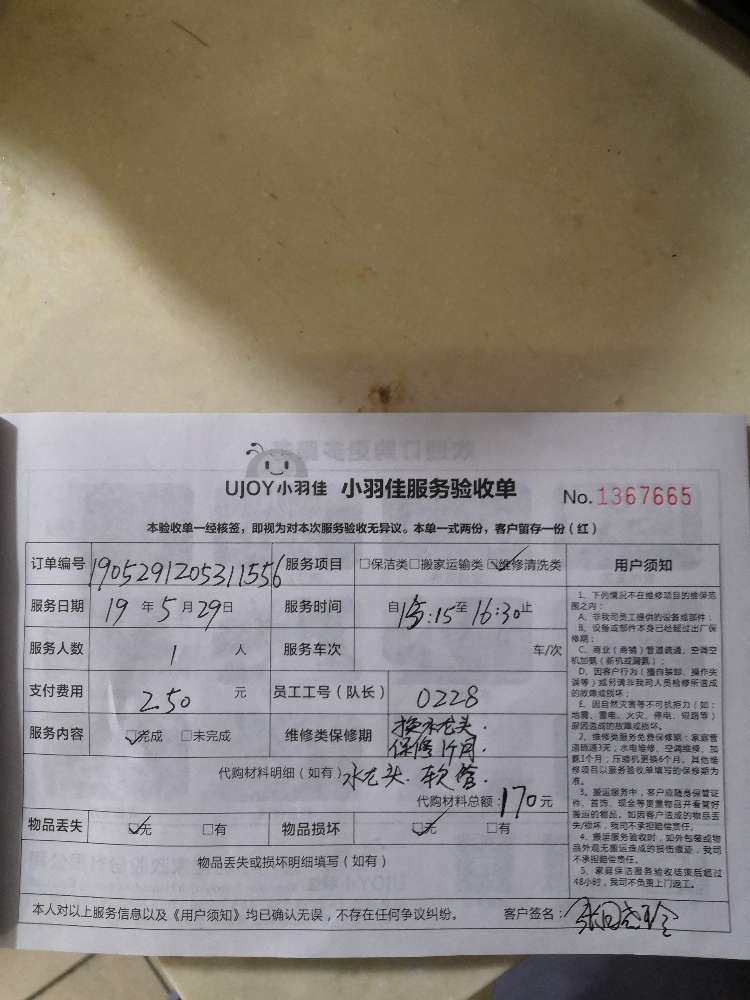 UJOY小羽佳 小羽佳服务验收单 No. 1367665
本验收单一经核签，即视为对本次服务验收无异议。本单一式两份，客户留存一份（红）
订单编号 1905291205311556 服务项目 □保洁类□搬家运输类☑维修清洗类
服务日期 19 年 5 月 29 日 服务时间 自 15:15 至 16:30 止
服务人数 1 人 服务车次 车/次
支付费用 250 元 员工工号（队长） 0228
服务内容 ☑完成 □未完成 维修类保修期 换水龙头.
保修1个月.
代购材料明细（如有）水龙头. 软管.
代购材料总额：170元
物品丢失 ☑无 □有 物品损坏 ☑无 □有
物品丢失或损坏明细填写（如有）
本人对以上服务信息以及《用户须知》均已确认无误，不存在任何争议纠纷。 客户签名：
用户须知
1、下列情况不在维修项目的维保范
围之内：
A、非我司员工提供的设备或部件；
B、设备或部件本身已经超过出厂保
修期；
C、商业（商铺）管道疏通，空调空
机加氨（新机或漏氨）；
D、因客户行为（擅自装卸、操作失
误等）或另请非我司人员检修所造成
的故障或损坏；
E、因自然灾害等不可抗拒力（如：
地震、雷电、火灾、停电、短路等）
原因造成的故障或损坏。
2、维修类服务免费保修期：家庭管
道疏通3天，水电维修、空调维修、加
氨1个月；压缩机更换6个月，其他维
修项目以服务验收单填写的保修期为
准。
3、搬运服务中，客户应随身保管证
件、首饰、现金等贵重物品并看管好
搬运的物品，如因客户造成的物品丢
失/损坏，我司不承担赔偿责任。
4、搬运服务验收时，如外包装或物
品外观无搬运造成的损伤痕迹，我司
不承担赔偿责任。
5、家庭保洁服务验收结束后超过
48小时，我司不负责上门返工。